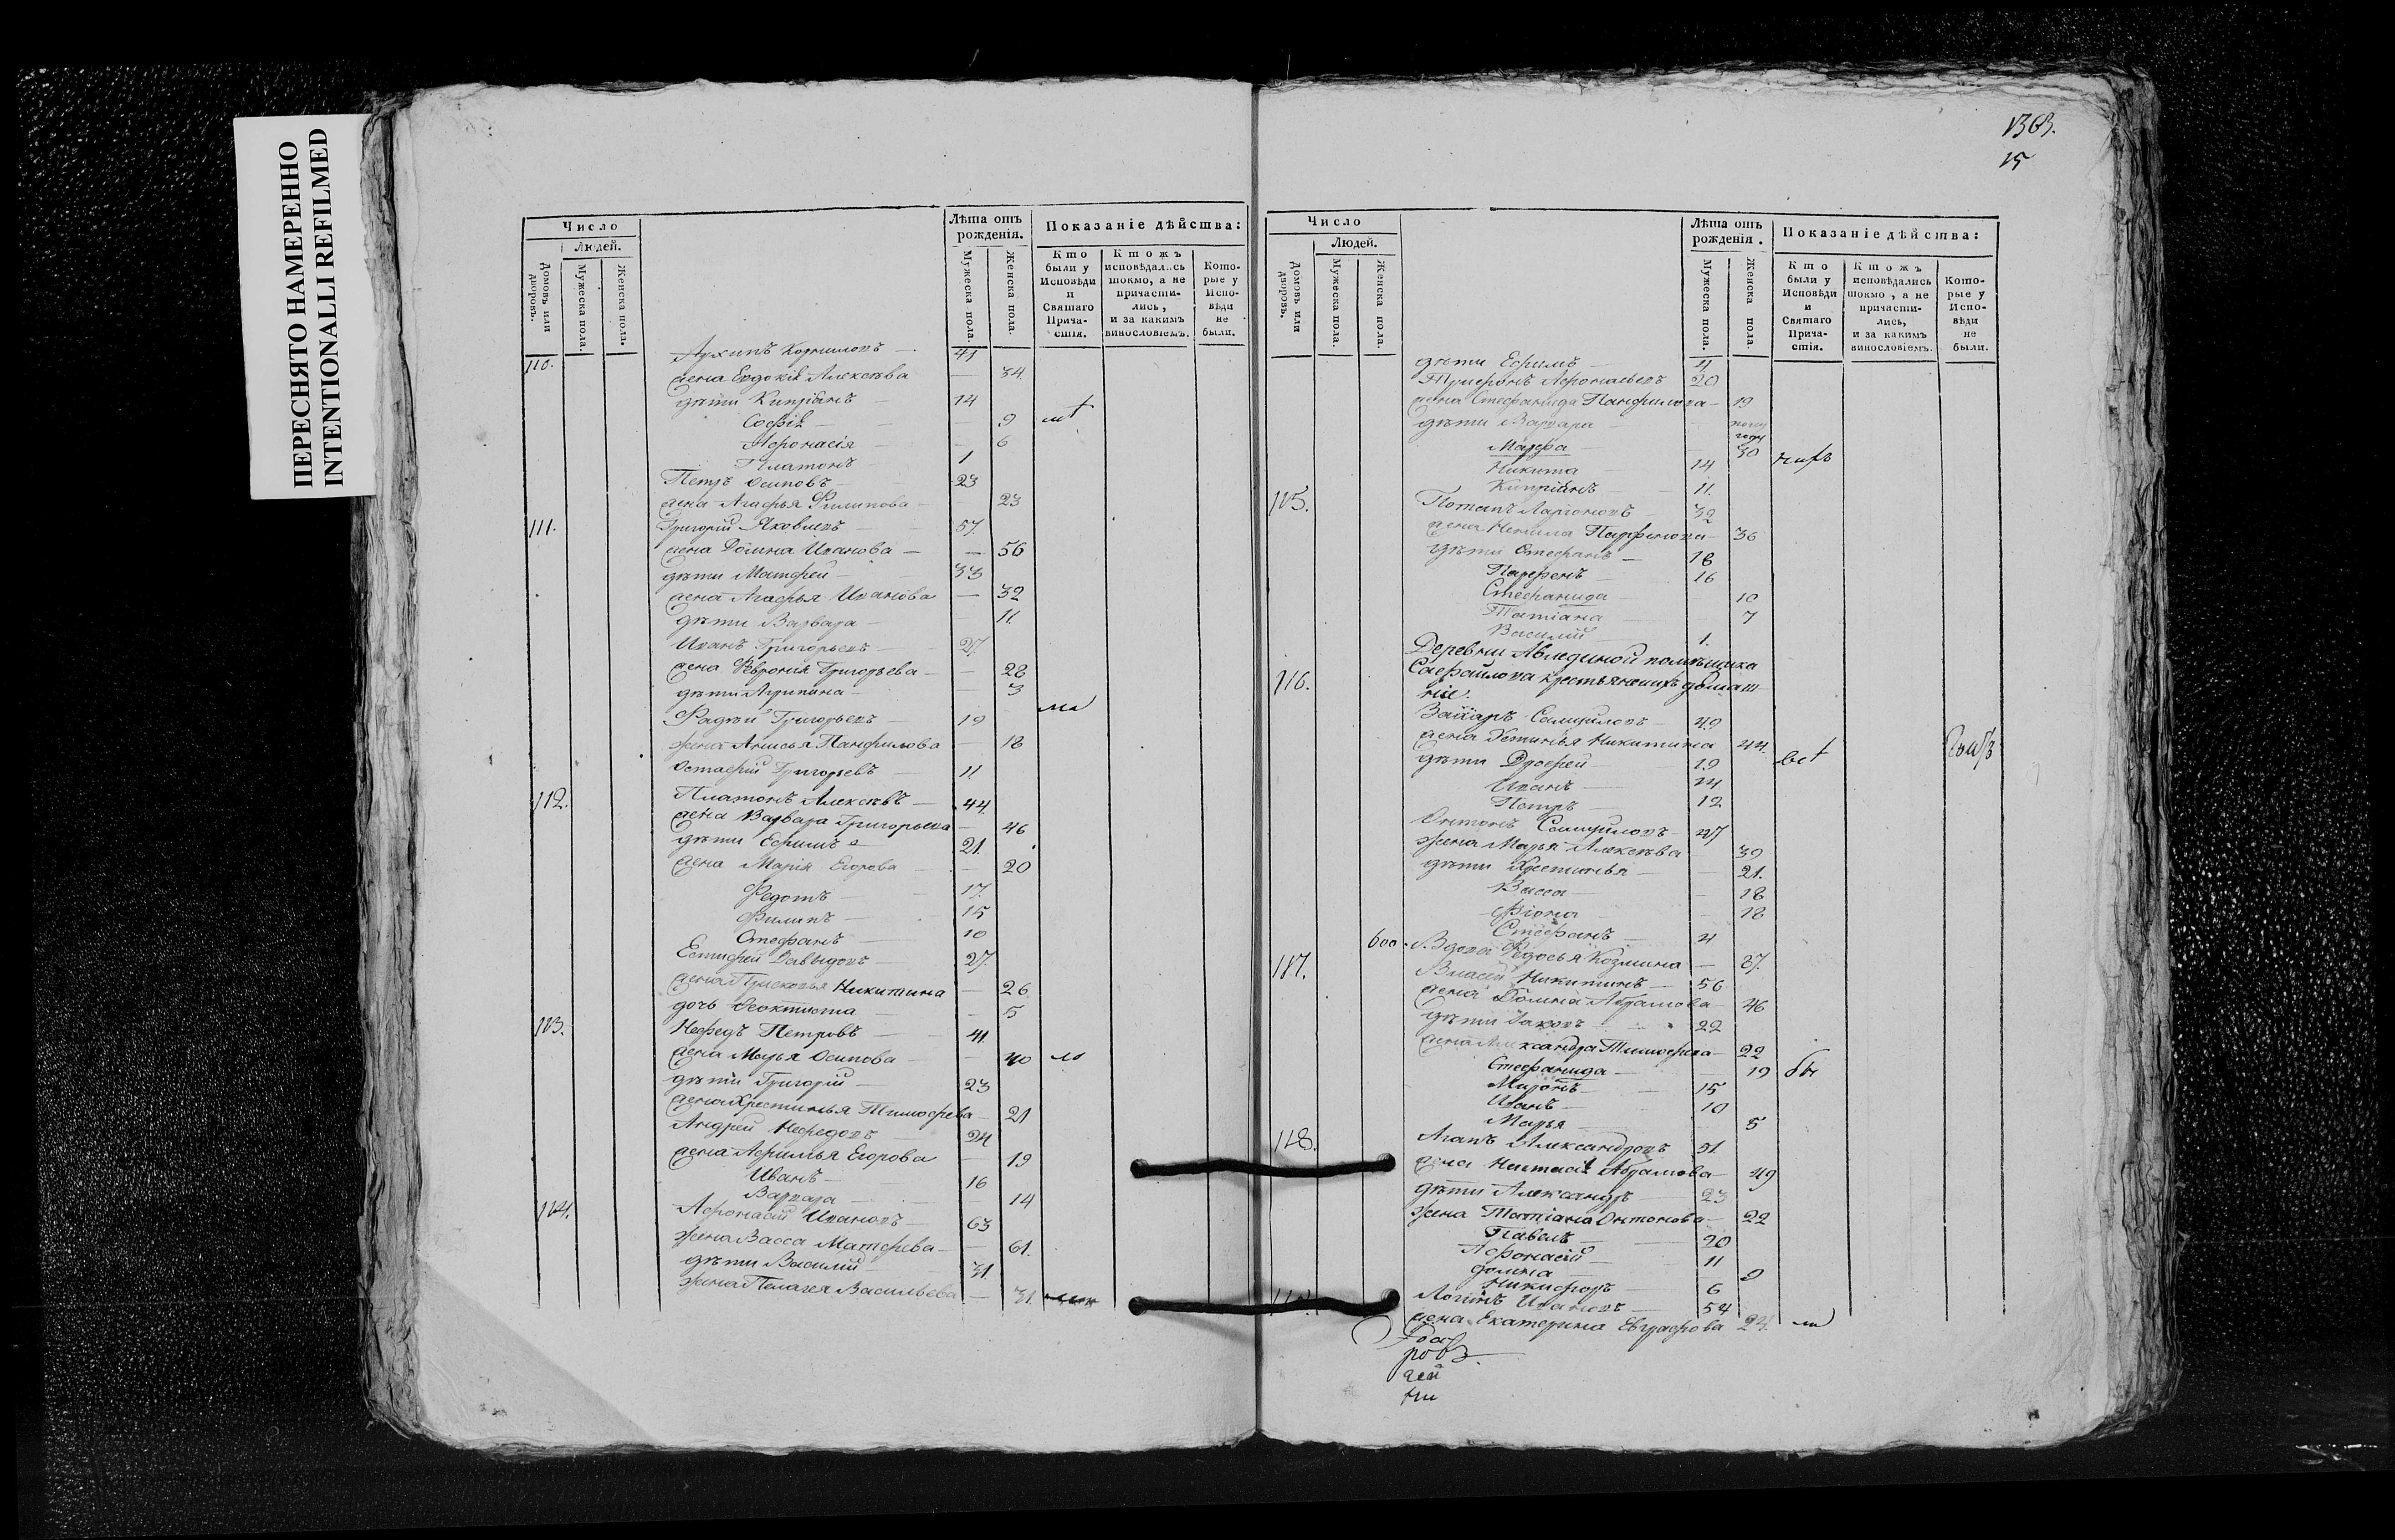 ПЕРЕСНЯТО НАМЕРЕННО
INTENTIONALLI REFILMED
Число
Людей.
Домовъ или дворовъ.
Мужеска пола.
Женска пола.
Лѣта отъ рожденія.
Мужеска пола.
Женска пола.
Показаніе дѣйства:
Кто были у Исповѣди и Святаго Прича-стія.
Ктожъ исповѣдались токмо, а не причасти-лись, и за какимъ винословіемъ.
Кото-рые у Испо-вѣди не были.
110. Архипъ Корниловъ — 41
жена Евдокія Алексѣева — 34
дѣти Кипріянъ — 14
Софія — 9
Афонасія — 6
Платонъ — 1
Петръ Осиповъ — 23
жена Агафья Филипова — 23
111. Григорій Яковлевъ — 57
жена Домна Иванова — 56
дѣти Матфей — 33
жена Агафья Иванова — 32
дѣти Варвара — 11
Иванъ Григорьевъ — 27
жена Февронія Григорьева — 28
дѣти Агрипина — 3
Фадѣй Григорьевъ — 19
жена Анисья Панфилова — 18
Остафій Григорьевъ — 11
112. Платонъ Алексѣевъ — 44
жена Варвара Григорьева — 46
дѣти Ефимъ — 21
жена Марія Егорова — 20
Федотъ — 17
Филипъ — 15
Стефанъ — 10
Естифей Давыдовъ — 27
жена Прасковья Никитина — 26
дочь Феоктиста — 5
113. Нефедъ Петровъ — 41
жена Марья Осипова — 40
дѣти Григорій — 23
жена Хрестинья Тимофеева — 21
Андрей Нефедовъ — 24
жена Афимья Егорова — 19
Иванъ — 16
Варвара — 14
114. Афонасій Ивановъ — 63
жена Васса Матфеева — 61
дѣти Василій — 31
жена Пелагея Васильева — 31
1363.
15
Число
Людей.
Домовъ или дворовъ.
Мужеска пола.
Женска пола.
Лѣта отъ рожденія.
Мужеска пола.
Женска пола.
Показаніе дѣйства:
Кто были у Исповѣди и Святаго Прича-стія.
Ктожъ исповѣдались токмо, а не причасти-лись, и за какимъ винословіемъ.
Кото-рые у Испо-вѣди не были.
дѣти Ефимъ — 4
Трифонъ Афонасьевъ 20
жена Стефанида Панфилова — 19
дѣти Варвара — году
Марфа — 30
Никита — 14
Кипріянъ — 11
115. Потапъ Ларіоновъ — 39
жена Ненила Парфенова — 36
дѣти Стефанъ — 18
Парфенъ — 16
Стефанида — 10
Татіана — 7
Василій — 1
Деревни помѣщика
116. крестьянскихъ домаш
ніе.
Захаръ — 49
жена Устинья Никитина 44
дѣти — 19
Иванъ — 14
Петръ — 12
Антонъ — 47
жена Марья Алексѣева — 39
дѣти Хрестинья — 21
Васса — 18
Фіона — 18
Стефанъ — 4
вдова Федосья Козмина — 87
117. Власей Никитинъ — 56
жена Домна Абрамова — 46
дѣти Яковъ — 22
жена Александра Тимофеева — 22
Стефанида — 19
Миронъ — 15
Иванъ — 10
Марья — 5
118. Агапъ Александровъ 51
жена Настасья Абрамова — 49
дѣти Александръ — 23
жена Татіана Антонова — 22
Павелъ — 20
Афонасій — 11
Домна — 9
Никифоръ — 6
Логинъ Ивановъ — 54
жена Екатерина Евграфова